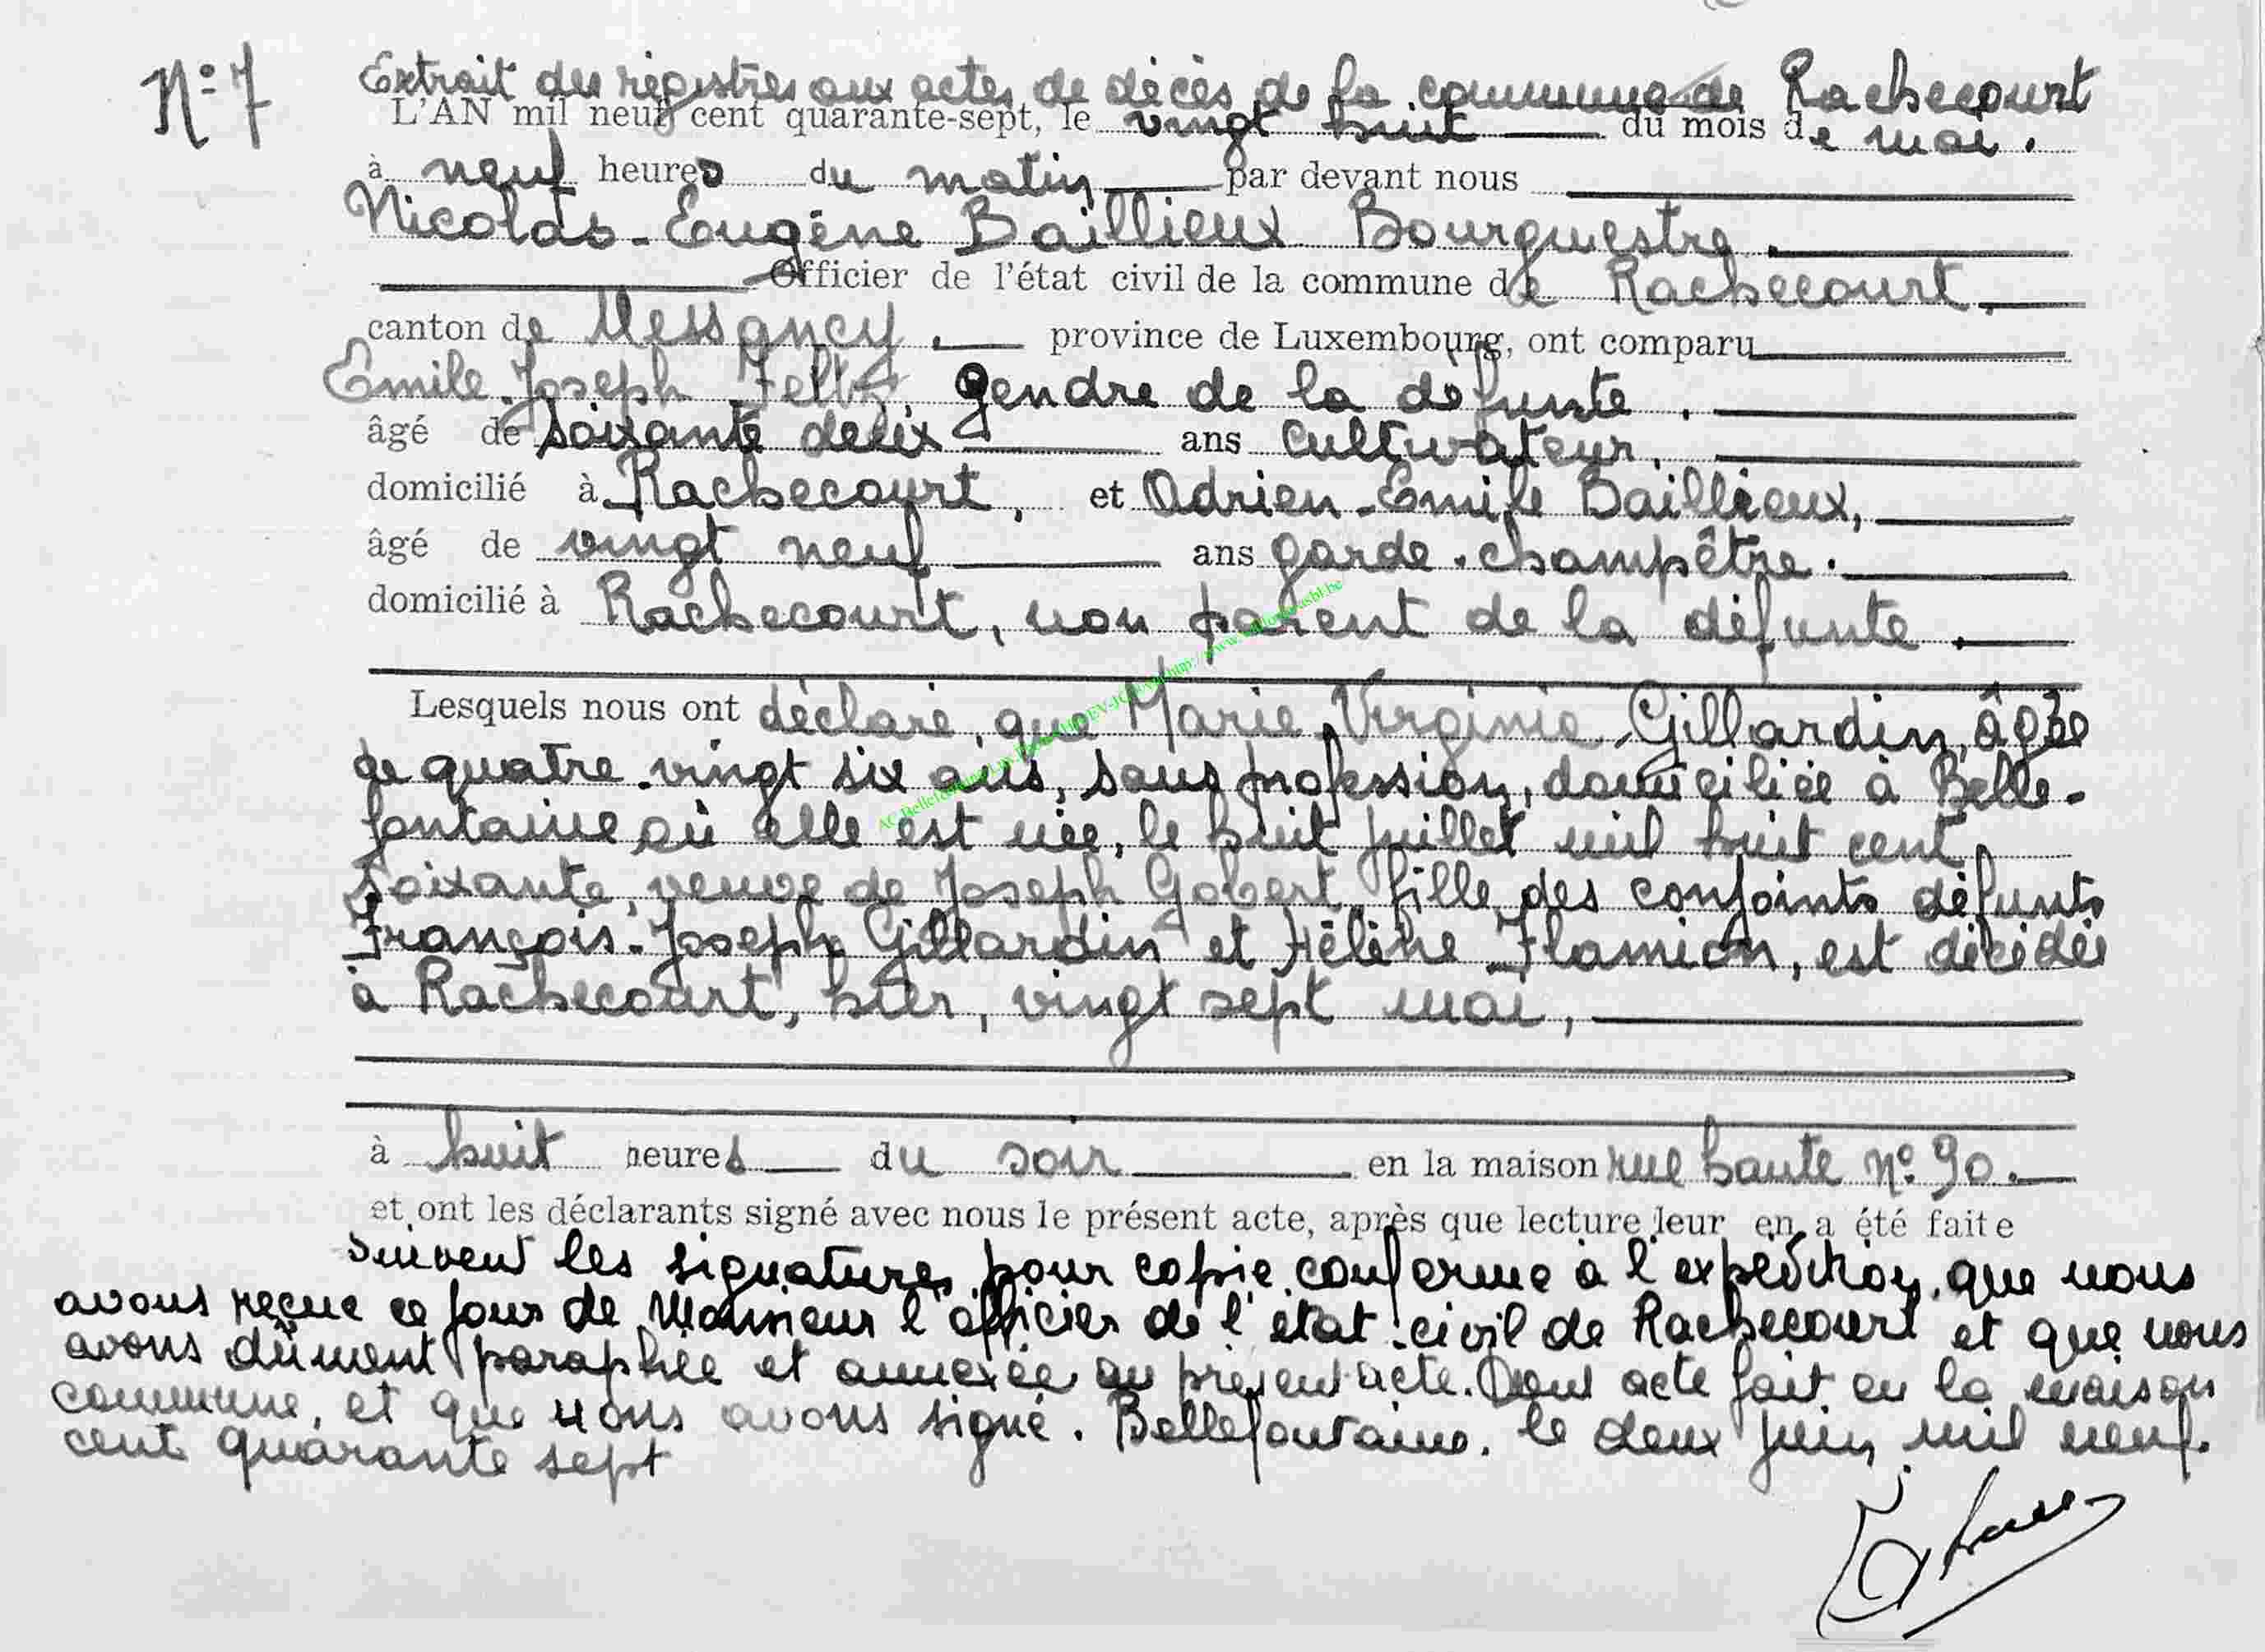 N° 7
Extrait des registres aux actes de décès de la commune de Rachecourt
L'AN mil neuf cent quarante-sept, le vingt huit du mois de mai.
à neuf heures du matin par devant nous
Nicolas-Eugène Baillieux Bourgmestre.
Officier de l'état civil de la commune de Rachecourt,
canton de Messancy. province de Luxembourg, ont comparu
Emile-Joseph Feltz, gendre de la défunte.
âgé de soixante deux ans cultivateur.
domicilié à Rachecourt, et Adrien-Emile Baillieux,
âgé de vingt neuf ans garde-champêtre.
domicilié à Rachecourt, non parent de la défunte.
Lesquels nous ont déclaré, que Marie-Virginie-Gillardin, âgée
de quatre-vingt six ans, sans profession, domiciliée à Belle-
fontaine où elle est née, le huit juillet mil huit cent
soixante, veuve de Joseph Gobert, fille des conjoints défunts
François-Joseph Gillardin et Hélène Flamion, est décédée
à Rachecourt, hier, vingt sept mai,
à huit heures du soir en la maison rue haute N° 90.
et ont les déclarants signé avec nous le présent acte, après que lecture leur en a été faite
suivent les signatures, pour copie conforme à l'expédition, que nous
avons reçue ce jour de Monsieur l'officier de l'état-civil de Rachecourt et que nous
avons dûment paraphée et annexée au présent acte. Dont acte fait en la maison
commune, et que nous avons signé. Bellefontaine, le deux juin mil neuf
cent quarante sept